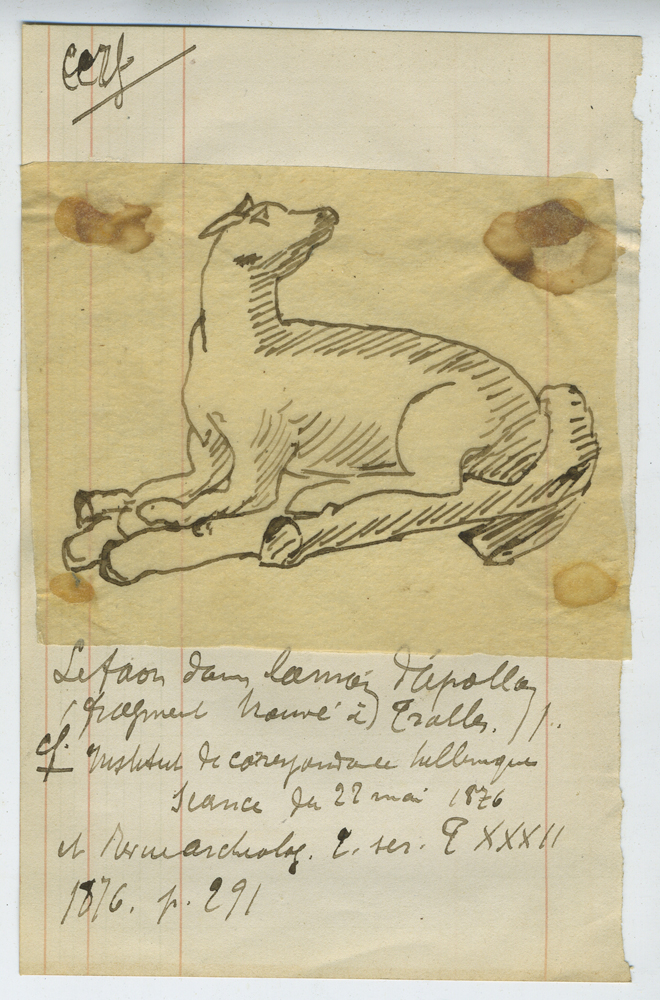 cerf
Le faon dans la main d'apollon
(fragment trouvé à Tralles.)
cf. Institut de correspondance hellenique
Seance du 22 mai 1876
et Revue archeolog. 2. ser. T XXXII
1876. p. 291